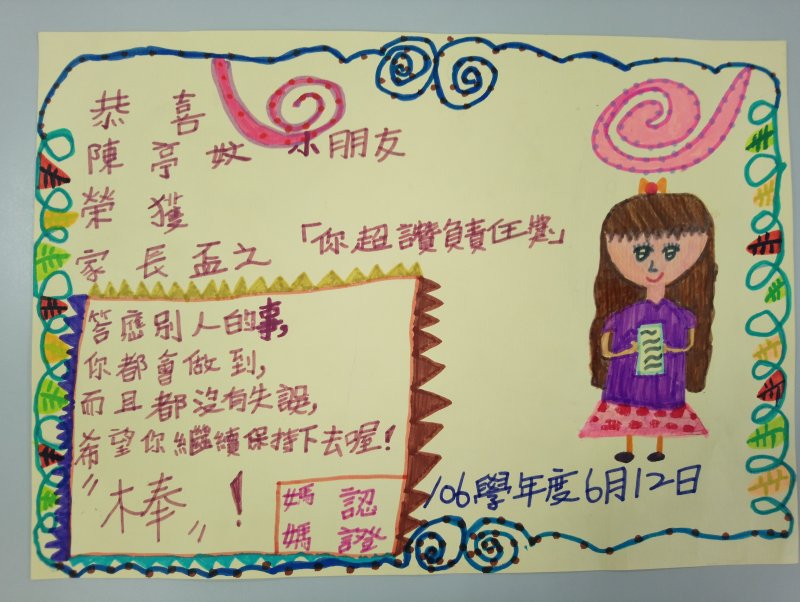 恭喜
陳亭妏 小朋友
榮獲
家長盃之「你超讚負責任獎」
答應別人的事,
你都會做到,
而且都沒有失誤,
希望你繼續保持下去喔!
"棒"!
媽媽 認證
106學年度6月12日